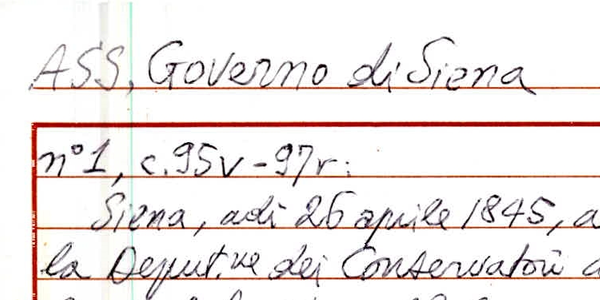 ASS, Governo di Siena
n°1, c.95v-97r:
Siena, adì 26 aprile 1845, a
la Deput.ne dei Conservatori